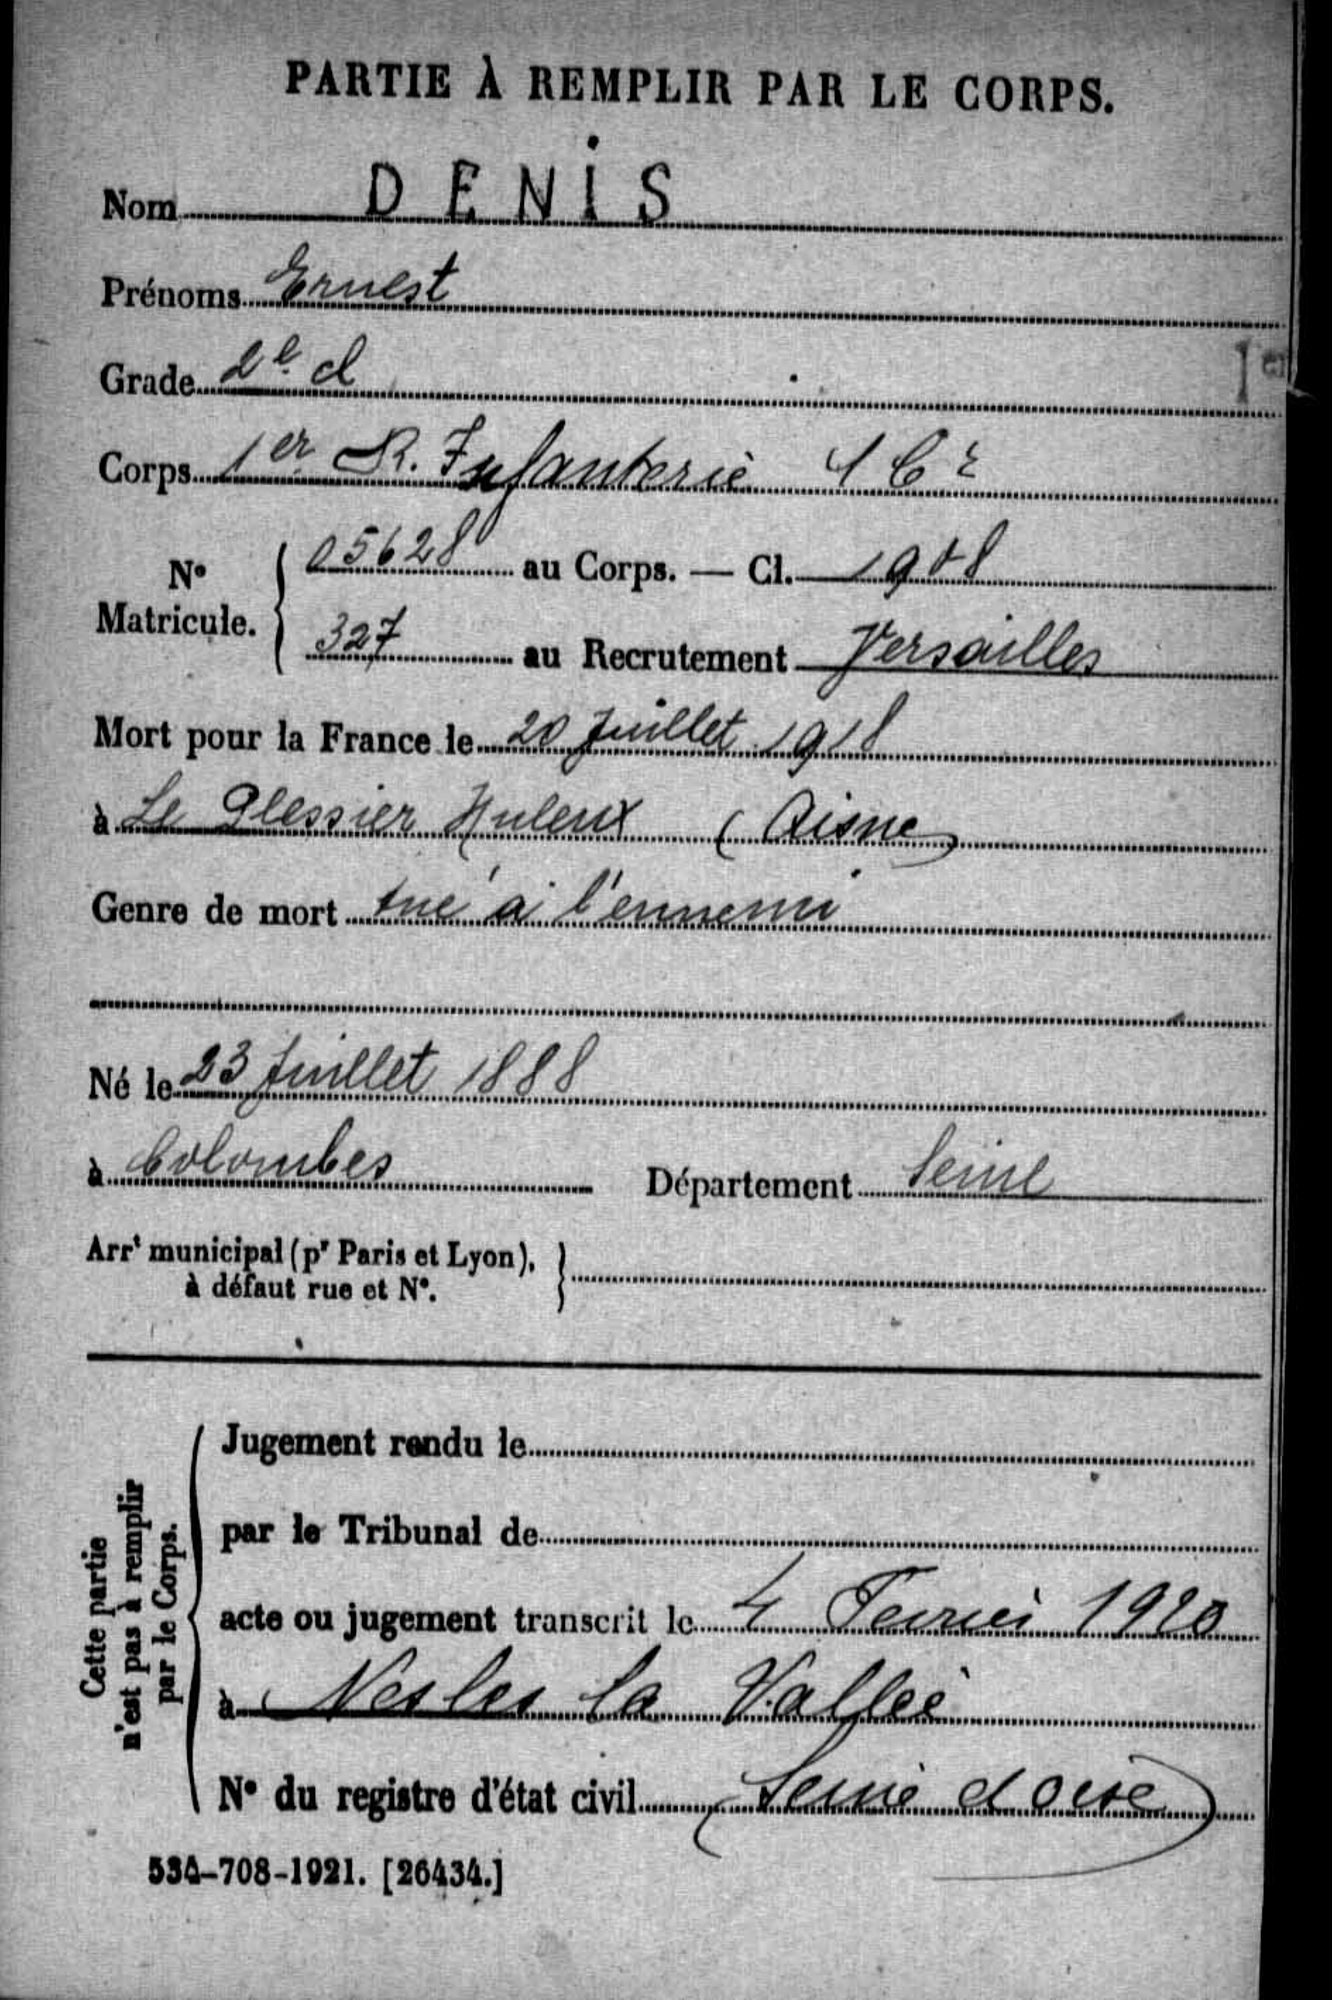 PARTIE À REMPLIR PAR LE CORPS.
Nom DENIS
Prénoms Ernest
Grade 2e cl
1er
Corps 1er R. Infanterie
Nº Matricule. 05628 au Corps. — Cl. 1908
327 au Recrutement Versailles
Mort pour la France le 20 Juillet 1918
à Le Plessier Huleux (Aisne)
Genre de mort tué à l'ennemi
Né le 23 Juillet 1888
à Colombes Département Seine
Arrt municipal (pr Paris et Lyon),
à défaut rue et Nº.
Cette partie
n'est pas à remplir
par le Corps.
Jugement rendu le
par le Tribunal de
acte ou jugement transcrit le 4 Fevrier 1920
à Nesles la Vallée
Nº du registre d'état civil (Seine et oise)
534-708-1921. [26434.]